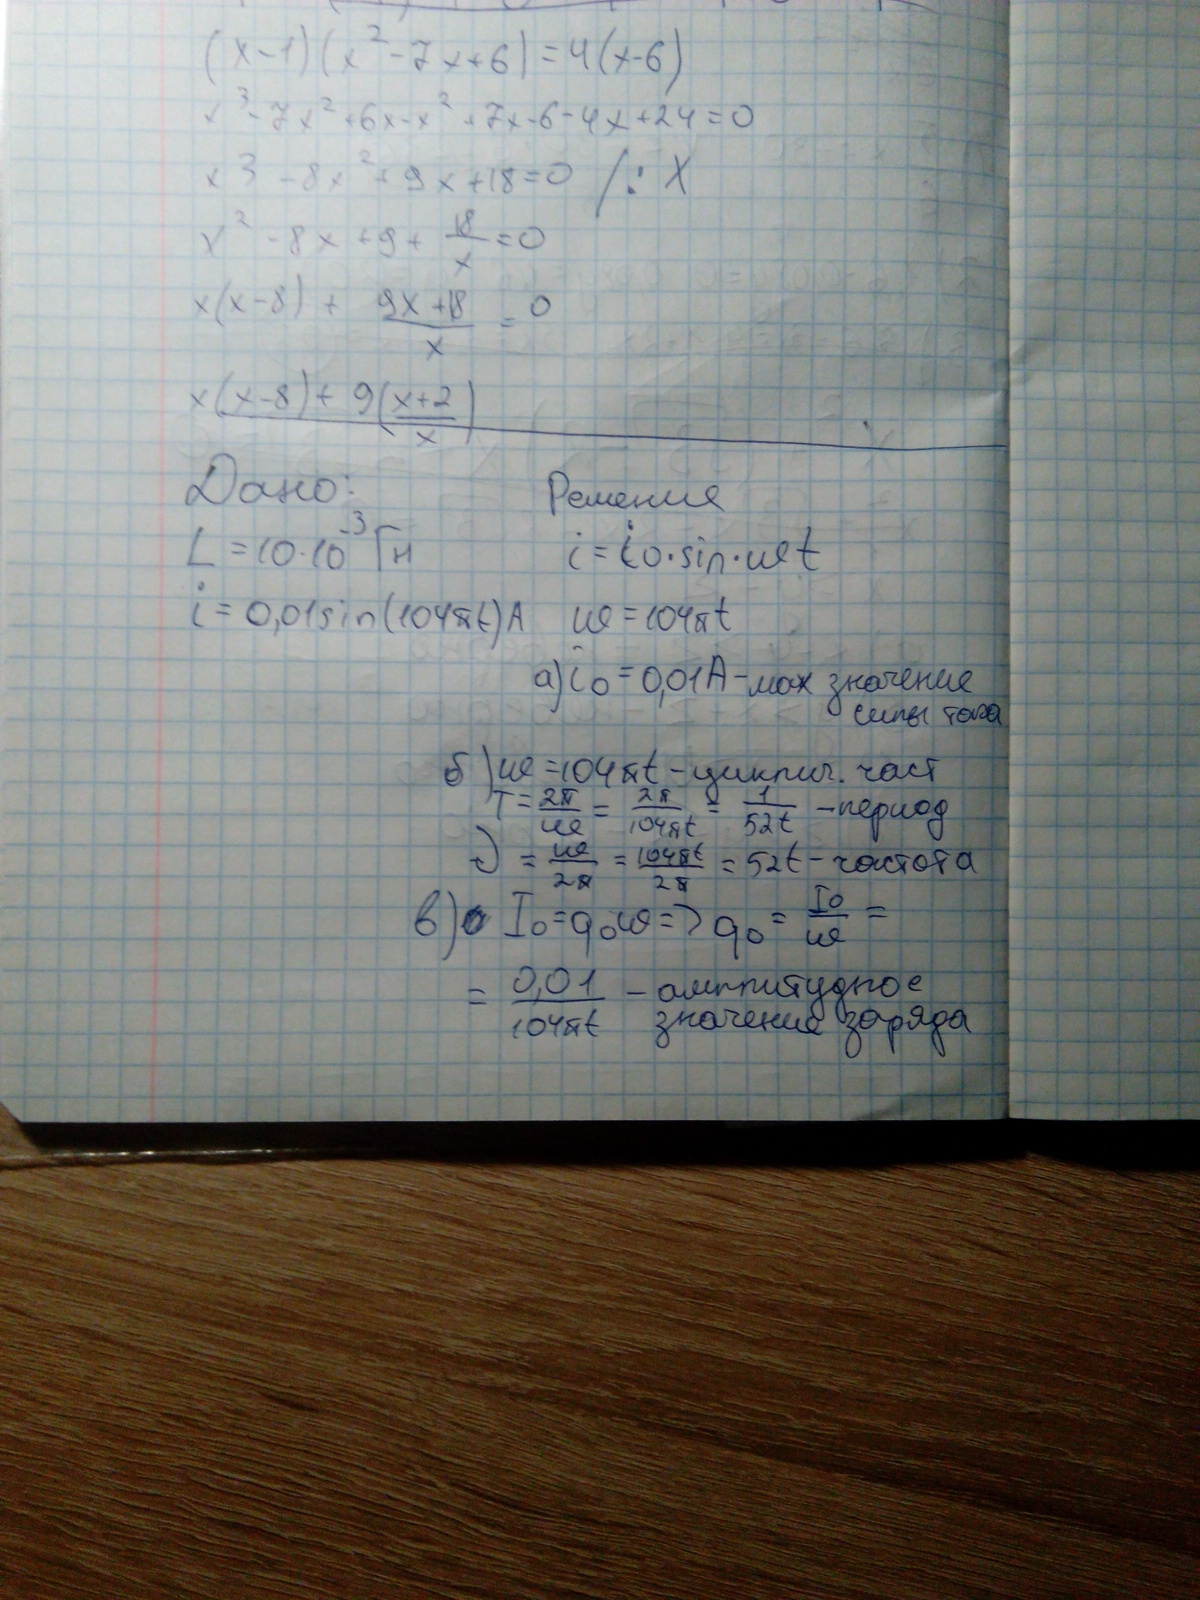 (x-1)(x²-7x+6)=4(x-6)
x³-7x²+6x-x²+7x-6-4x+24=0
x³-8x²+9x+18=0 /:X
x²-8x+9+18/x=0
x(x-8)+ (9x+18)/x =0
x(x-8)+9((x+2)/x)
Дано: Решение
L=10·10⁻³Гн i=i₀·sin·ωt
i=0,01sin(104πt)A ω=104πt
а) i₀=0,01A-мах значение
силы тока
б) ω=104πt-циклич. част
T=2π/ω=2π/104πt=1/52t-период
ν=ω/2π=104πt/2π=52t-частота
в) I₀=q₀ω=>q₀=I₀/ω=
=0,01/104πt-амплитудное
значение заряда